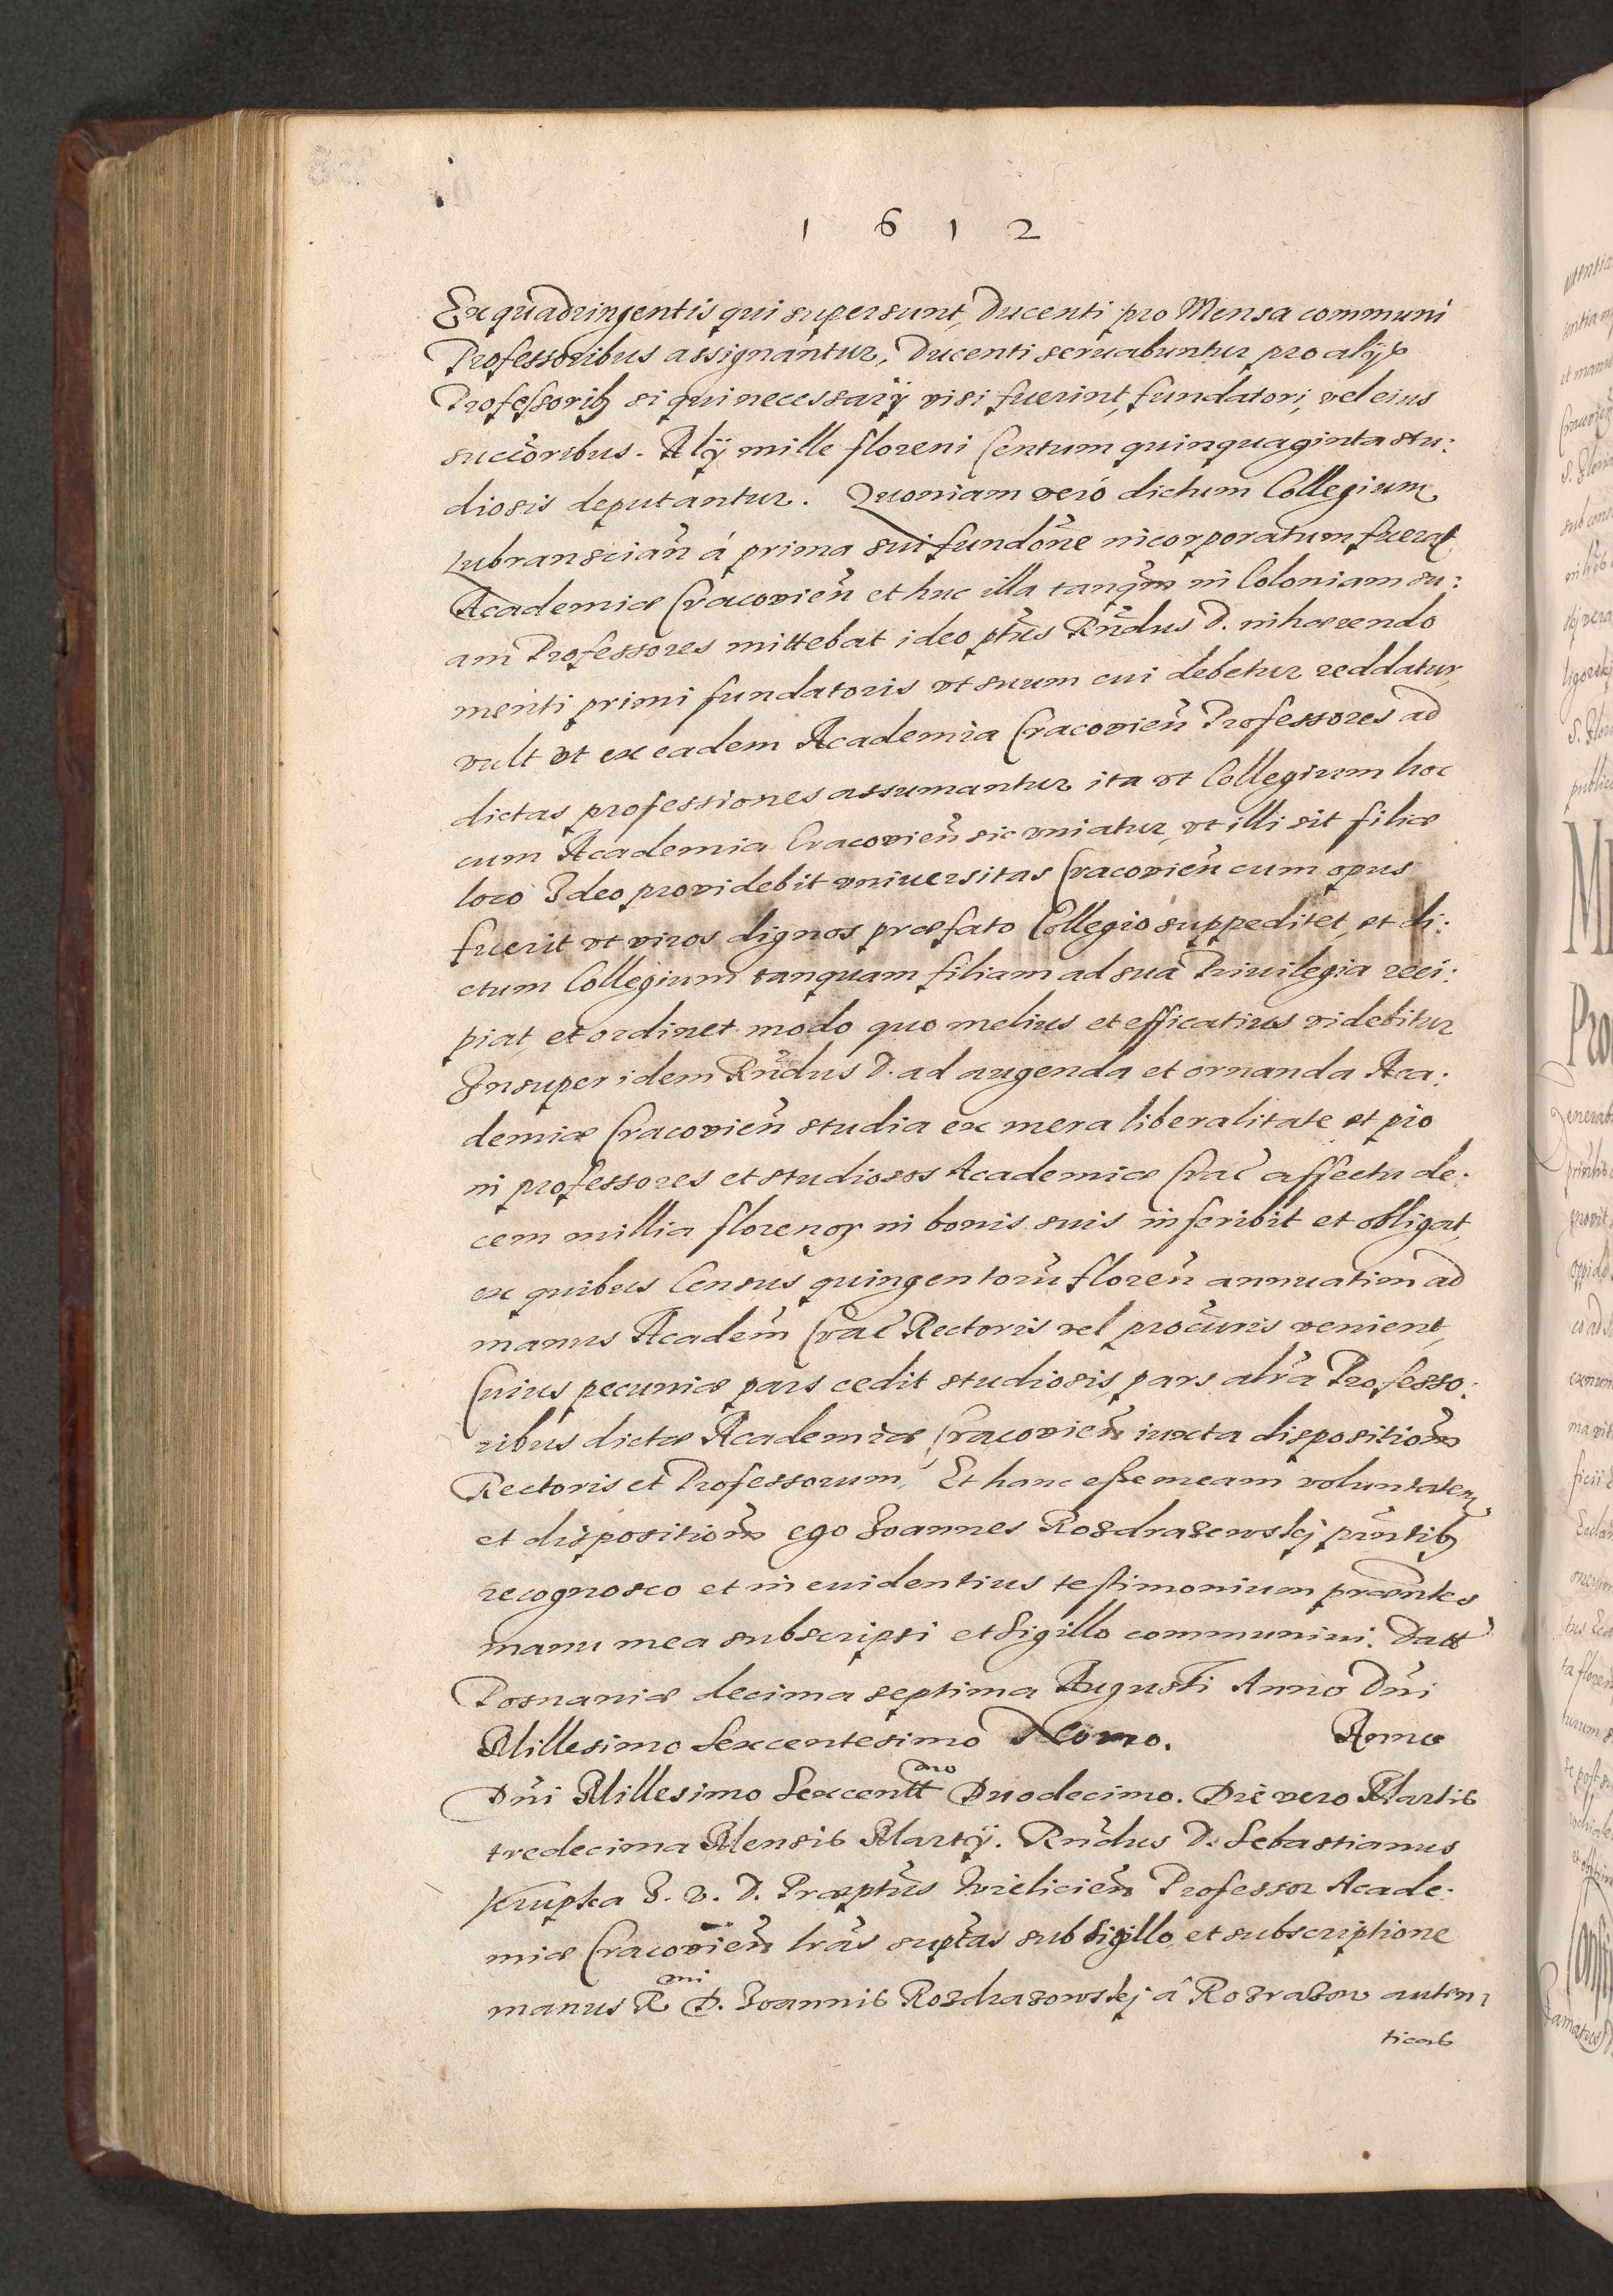 1 6 1 2
Ex quadringentis qui supersunt, Ducenti pro Mensa communi
Professoribus assignantur, Ducenti seruabuntur pro alijs
Professorib9 si qui necessarij visi fuerint, fundatori, vel eius
succoribus. Alij mille floreni Centum quinquaginta stu:
diosis deputantur. Quoniam veró dictum Collegium
Lubranscian̄ á prima sui fundōne incorporatum fuerat
Academiæ Cracovien̄ et huc illa tanq̄m in Coloniam su:
am Professores mittebat ideo pt̄us Rn̄dus D. inhærendo
menti primi fundatoris vt suum cui debetur reddatur,
vult vt ex eadem Academia Cracovien̄ Professores ad
dictas professiones assumantur ita vt Collegium hoc
cum Academia Cracovien̄ sic vniatur, vt illi sit filiæ
loco Ideo providebit vniuersitas Cracovien̄ cum opus
fuerit vt viros dignos præfato Collegio suppeditet, et di:
ctum Collegium tanquam filiam ad sua Priuilegia reci:
piat, et ordinet modo quo melius et efficatius videbitur
Insuper idem Rn̄dus D. ad augenda et ornanda Aca:
demiæ Cracovien̄ studia ex mera liberalitate et pio
in professores et studiosos Academiæ Crac̄ affectu de:
cem millia florenoꝝ in bonis suis inscribit et obligat,
ex quibus Census quingentorū floren̄ annuatim ad
manus Academ̄ Crac̄ Rectoris vel procūris venient,
Cuius pecuniæ pars cedit studiosis, pars alr̄a Professo:
ribus dictæ Academiæ Cracovien̄ iuxta disposition̄
Rectoris et Professorum, Et hanc esse meam voluntatem
et disposition̄ ego Joannes Rozdrazewskj pūntib9
recognosco et in euidentius testimonium præn̄tes
manu mea subscripsi et Sigillo communiui. Datt
Posnaniæ decima septima Augusti Anno Dn̄i
Millesimo Sexcentesimo Nono. Anno
Dn̄i Millesimo Sexcentt mo Duodecimo. Die vero Martis
tredecima Mensis Martij. Rn̄dus D. Sebastianus
Krupka J. V. D. Præpt̄us Wielicien̄ Professor Acade:
miæ Cracovien̄ lrās supt̄as sub Sigillo, et subscriptione
manus R mi D. Joannis Rozdrazowskj â Rozrazow auten:
ticas